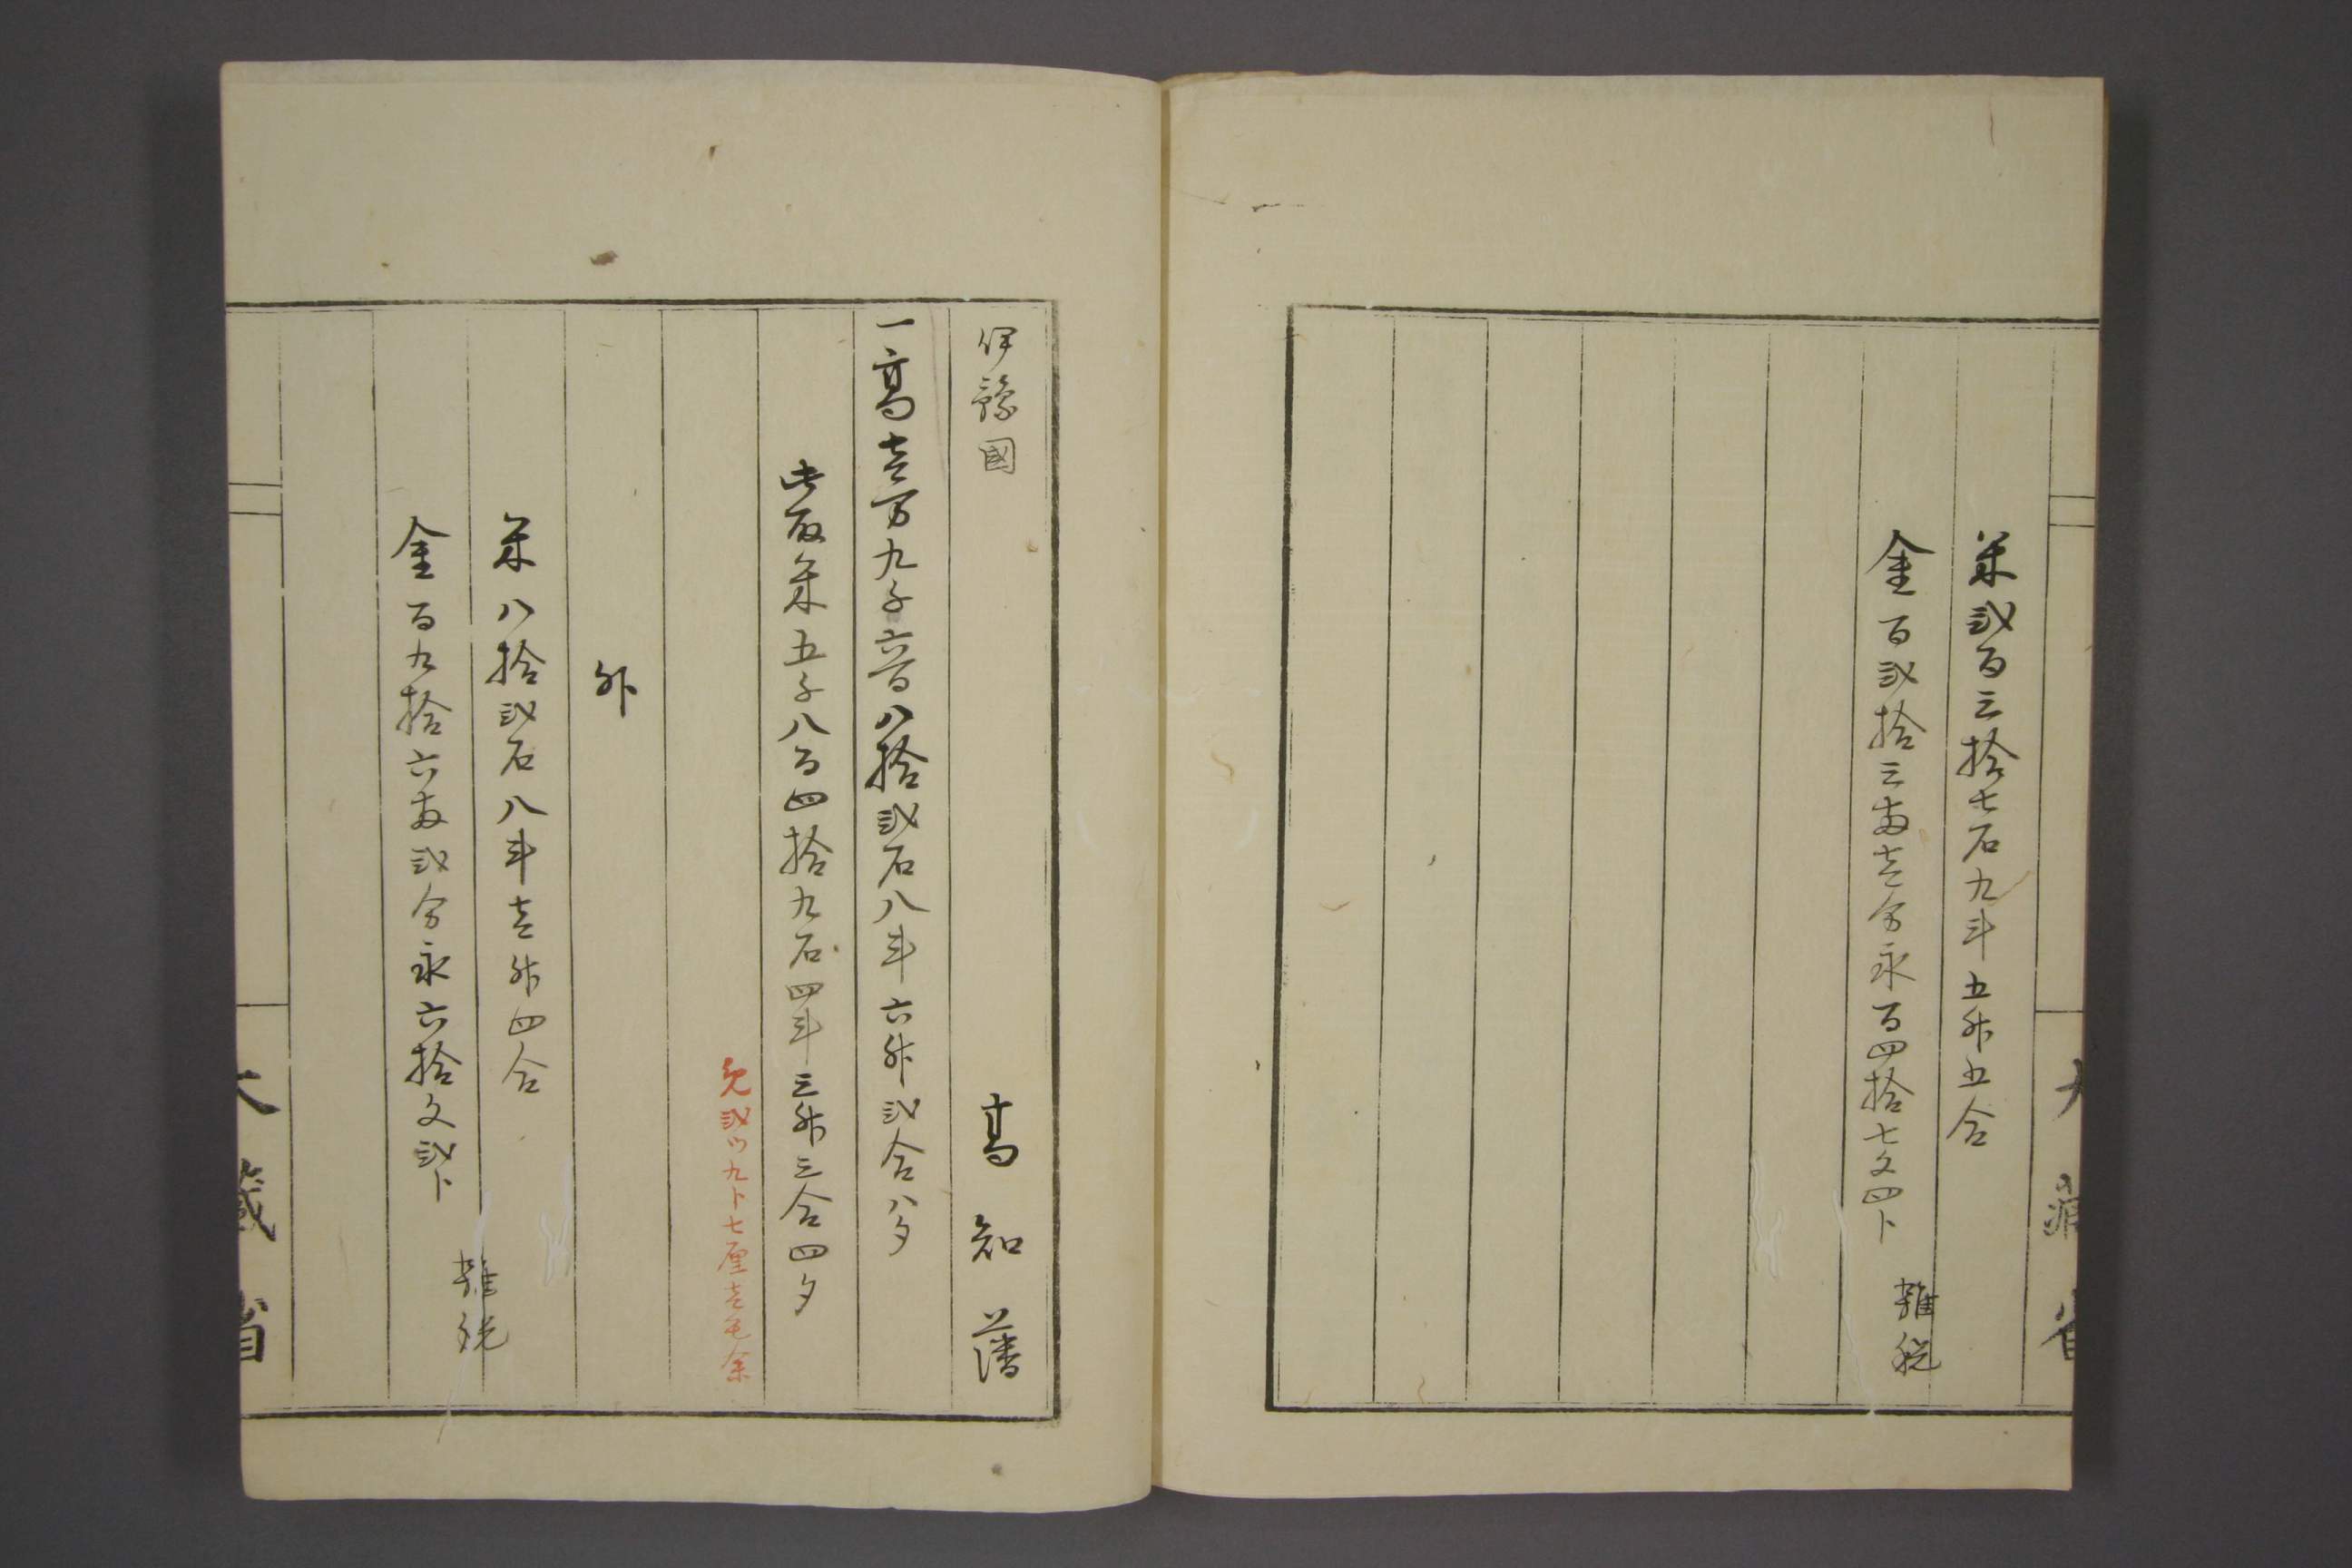 大蔵省
米弐百三拾七石九斗五升五合
金百弐拾三両壱分永百四拾七文四卜
雑税
伊豫國
高知藩
一高壱万九千六百八拾弐石八斗六升弐合八夕
此取米五千八百四拾九石四斗三升三合四夕
免弐ツ九卜七厘壱毛余
外
米八拾弐石八斗壱升四合
金百九拾六両弐分永六拾文弐卜
雑税
大蔵省